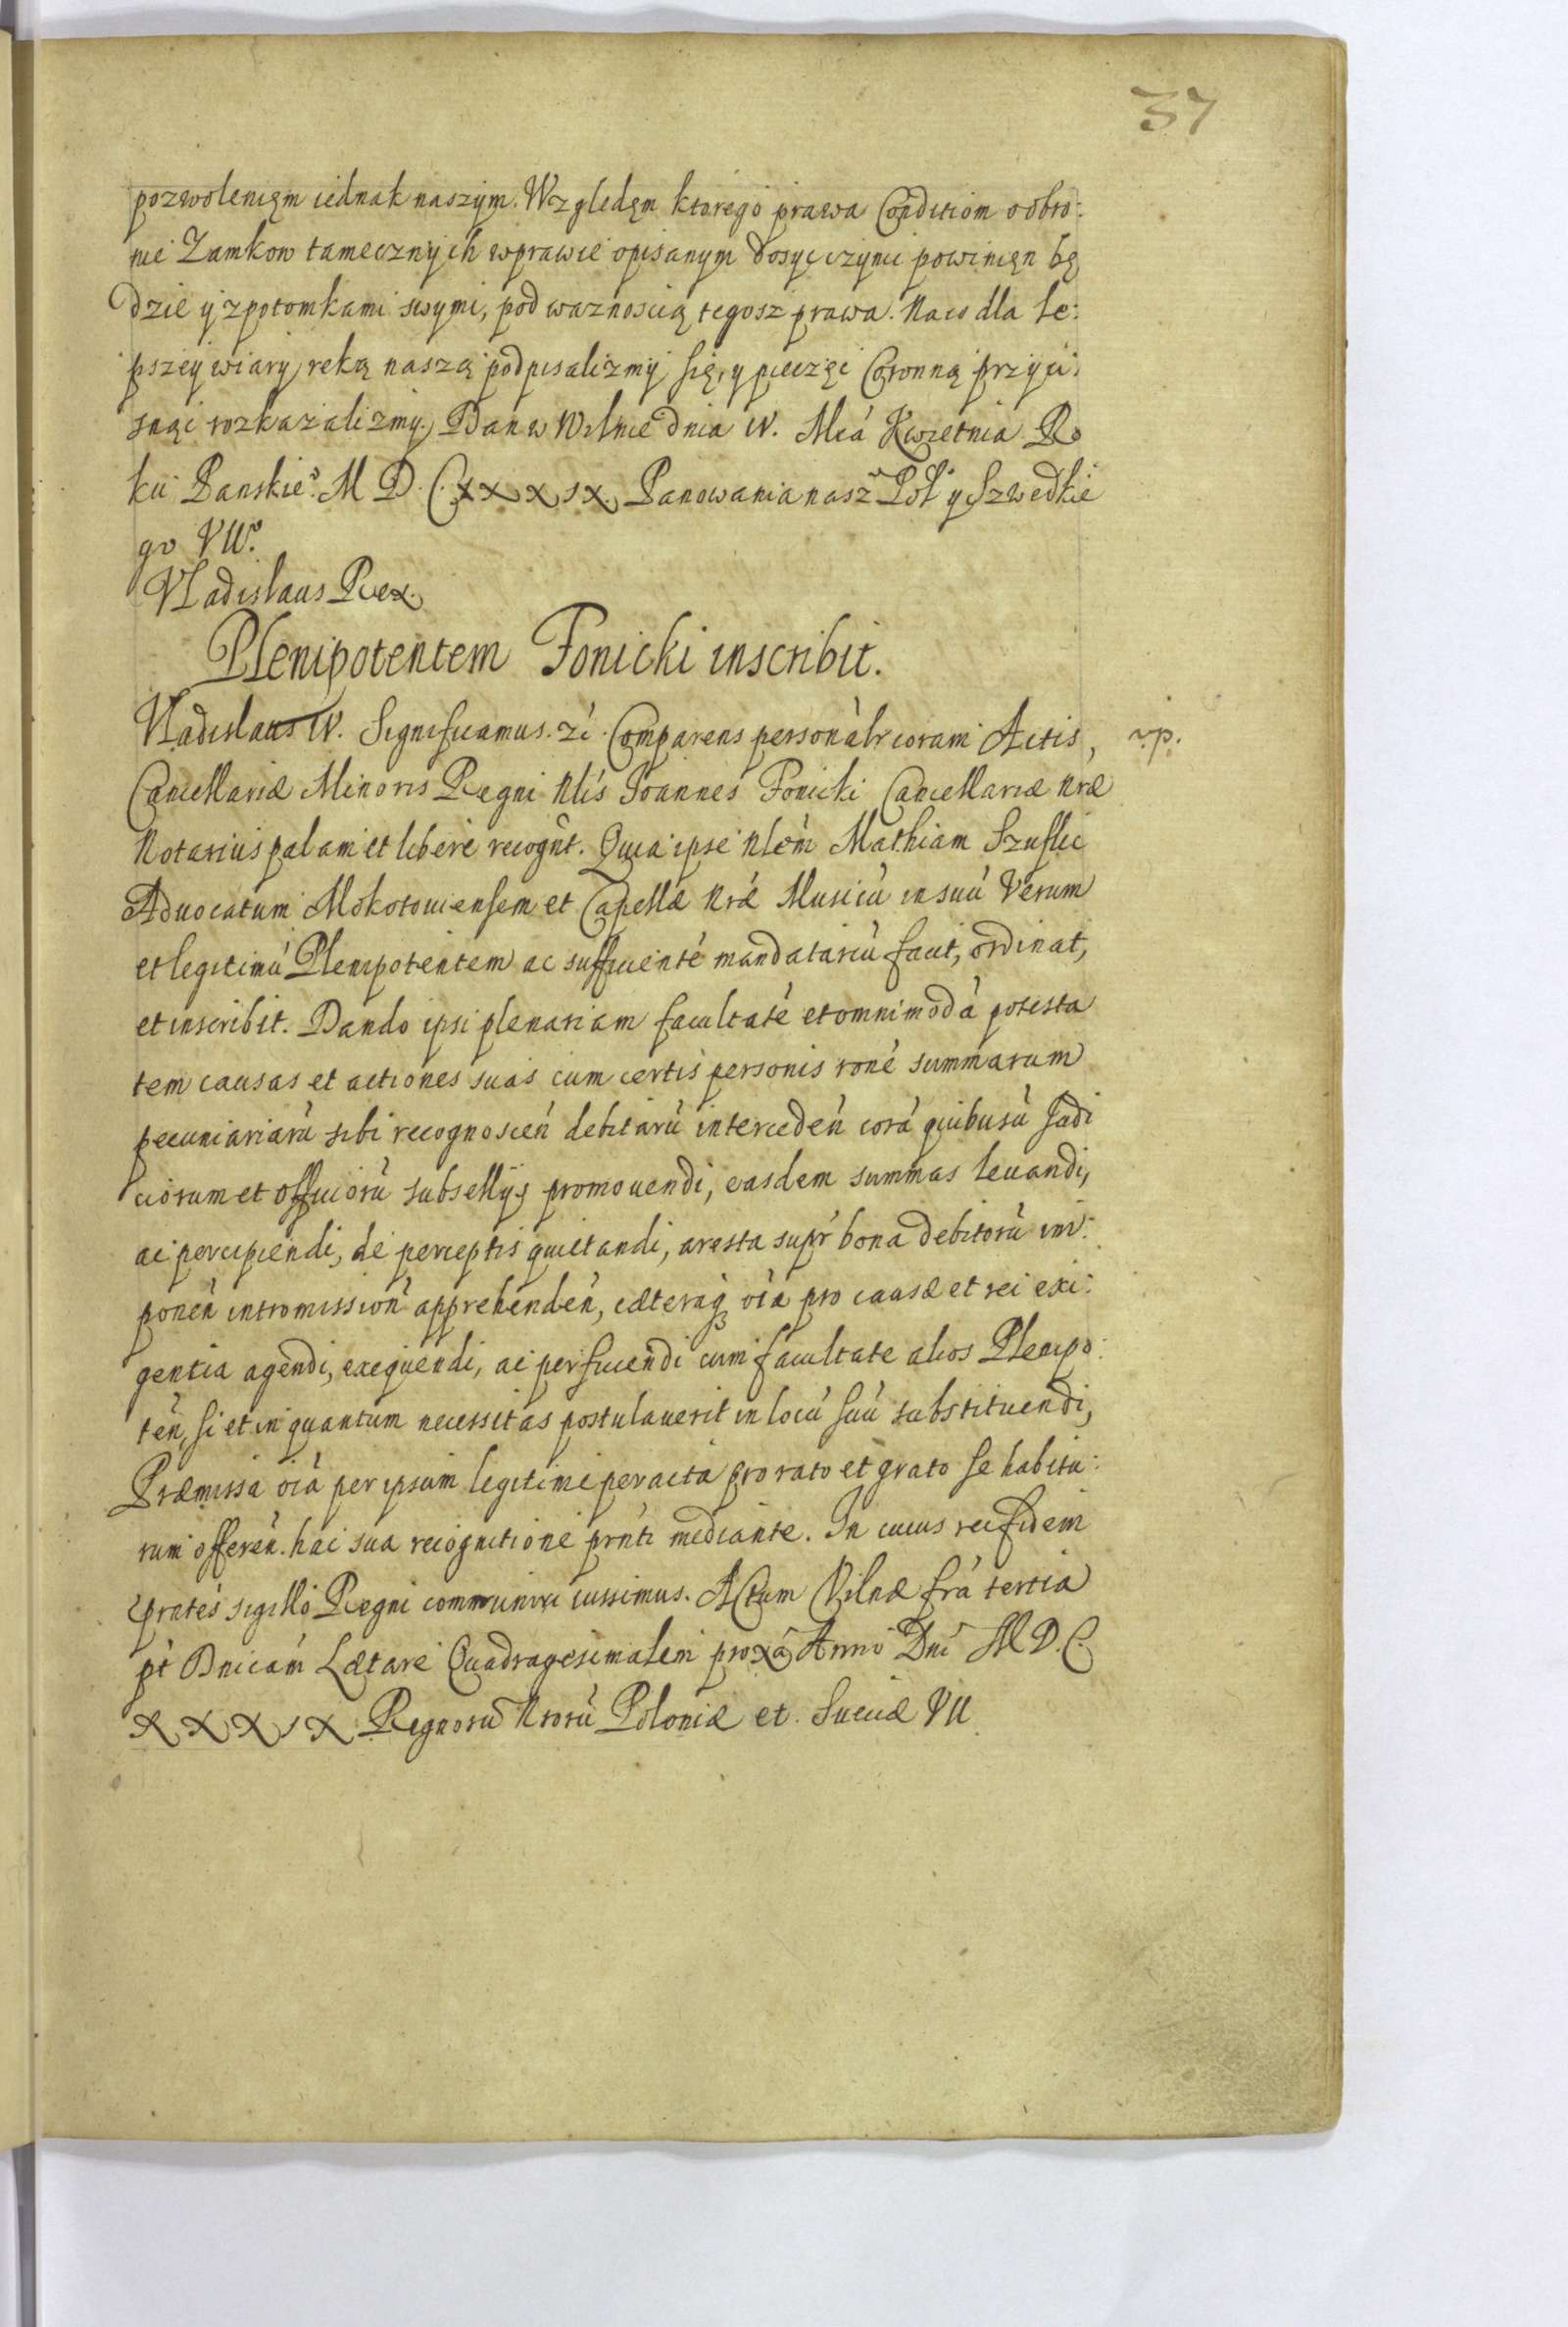 37
pozwolenięm iednak naszym. Względęm ktorego prawa Condition o obro:
nie Zamkow tamecznych w prawie opisanym dosyc czynic powinięn bę
dzie y z potomkami swymi, pod waznoscią tegosz prawa. Na co dla le:
pszey wiary, reką naszą podpisalizmy się, y pieczęc Coronną przyci:
snąc rozkazalizmy. Dan w Wilnie dnia IV. Mca Kwietnia Ro
ku Panskieo. M D. C. XXXIX. Panowania nasz Pol y Szwedkie
go VIIo.
Vladislaus Rex.
Plenipotentem Fonicki inscribit.
Vladislaus IV. Significamus. zc Comparens personalr coram Actis,
r. p.
Cancellariæ Minoris Regni Nlis Joannes Fonicki Cancellariæ Nræ
Notarius palam et libere recognt. Quia ipse Nlem Mathiam Szuflic
Aduocatum Mokotouiensem et Capellæ Nræ Musicu in suu Verum
et legitimu Plenipotentem ac sufficiente mandatariu facit, ordinat,
et inscribit. Dando ipsi plenariam facultate et omnimoda potesta
tem causas et actiones suas cum certis personis rone summarum
pecuniariaru sibi recognoscen debitaru interceden cora quibusu Judi
ciorum et officioru subsellijs promouendi, easdem summas leuandi,
ac percipiendi, de perceptis quietandi, aresta supr bona debitoru im:
ponen intromission apprehenden, cæteraq oia pro causæ et rei exi:
gentia agendi, exequendi, ac perficiendi cum facultate alios Plenipo:
ten, si et in quantum necessitas postulauerit in locu suu substituendi,
Præmissa oia per ipsum legitime peracta pro rato et grato se habitu:
rum offeren. hac sua recognitione prnti mediante. In cuius rei fidem
prntes sigillo Regni communiri iussimus. Actum Vilnæ fra tertia
pt Dnicam Lætare Quadragesimalem proxa Anno Dni M D. C.
XXXIX Regnoru Nroru Poloniæ et Sueciæ VII